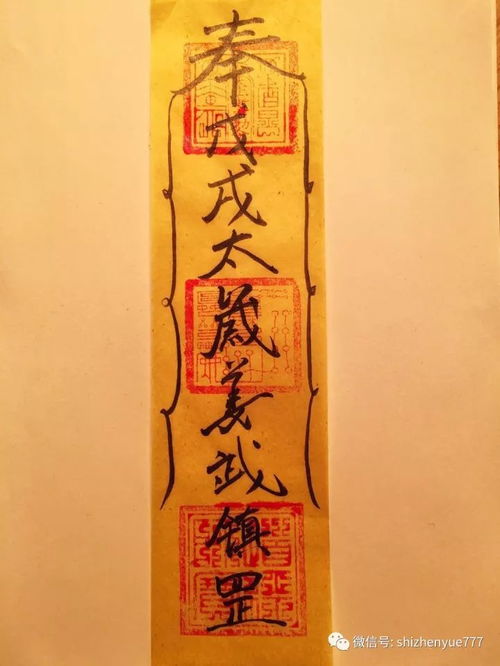 奉戊戌太歲姜武镇罡
微信号: shizhenyue777